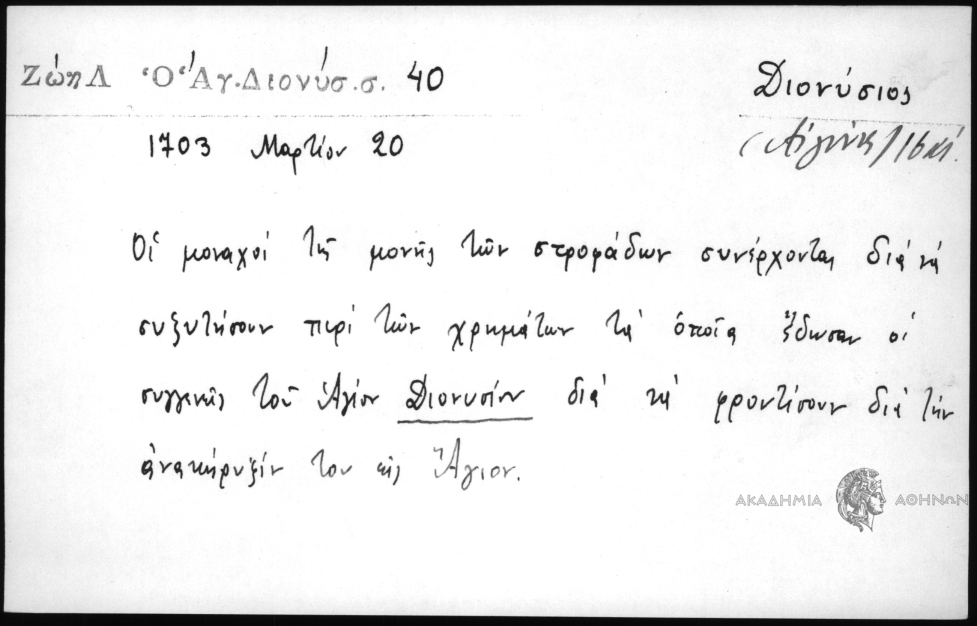 Ζώη Λ Ὁ Ἅγ. Διονύσ. σ. 40
Διονύσιος
(Αἰγίνης)
1703 Μαρτίου 20
Οἱ μοναχοί τῆς μονῆς τῶν στροφάδων συνέρχονται διά νά
συζυτήσουν περί τῶν χρημάτων τά ὁποῖα ἔδωσαν οἱ
συγγενῆς τοῦ Ἁγίου Διονυσίου διά νά φροντίσουν διά τήν
ἀνακήρυξίν του εἰς Ἅγιον.
ΑΚΑΔΗΜΙΑ ΑΘΗΝΩΝ